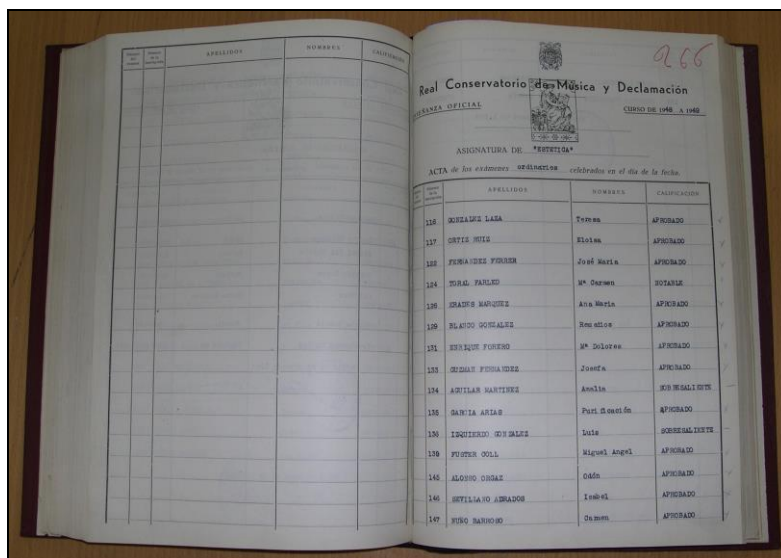 APELLIDOS NOMBRES
266
Real Conservatorio de Música y Declamación
OFICIAL CURSO DE 1948 A 1948
ASIGNATURA DE "ESTETICA"
ACTA de los exámenes ordinarios celebrados en el día de la fecha.
APELLIDOS NOMBRES CALIFICACIÓN
116 GONZALEZ LAZA Teresa APROBADO
117 ORTIZ RUIZ Eloisa APROBADO
122 FERNANDEZ FERRER José María APROBADO
124 TORAL Mª Carmen NOTABLE
MARQUEZ Ana María APROBADO
129 BLANCO GONZALEZ Remedios APROBADO
131 ENRIQUE FORERO Mª Dolores APROBADO
133 GUZMAN FERNANDEZ Josefa APROBADO
134 AGUILAR MARTINEZ Amalia SOBRESALIENTE
135 GARCIA ARIAS Purificación APROBADO
136 IZQUIERDO GONZALEZ Luis SOBRESALIENTE
139 FUSTER COLL Miguel Angel APROBADO
145 ALONSO ORGAZ Odón APROBADO
146 SEVILLANO Isabel APROBADO
147 NUÑO BARROSO Carmen APROBADO